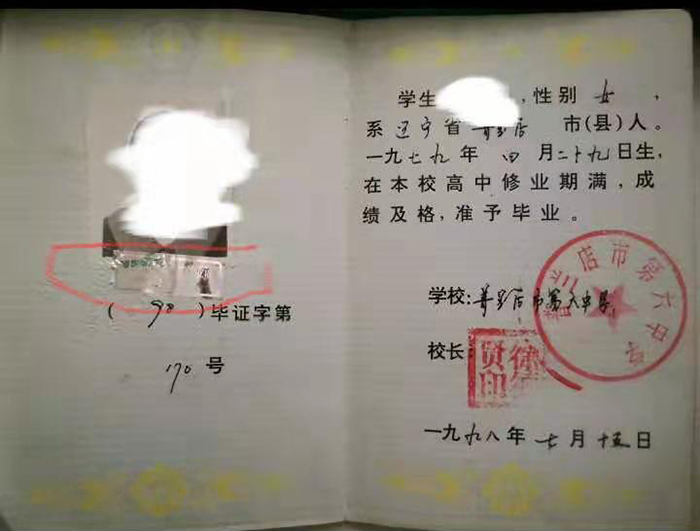 (98)毕证字第
170号
学生，性别女，
系辽宁省普兰店市(县)人。
一九七九年四月二十九日生，
在本校高中修业期满，成
绩及格，准予毕业。
学校:普兰店市第六中学
普兰店市第六中学
校长:
贤印
一九九八年七月十五日